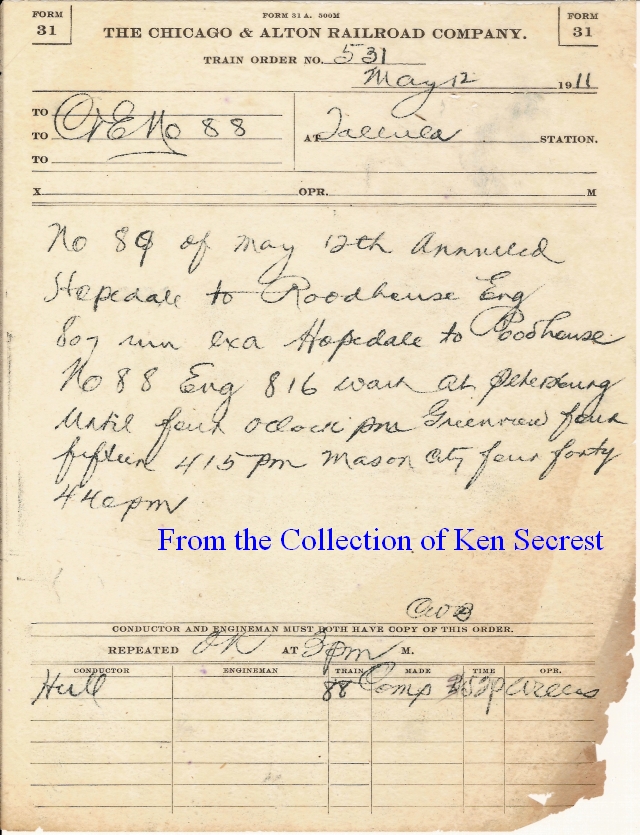 FORM 31
FORM 31 A. 500M
FORM 31
THE CHICAGO & ALTON RAILROAD COMPANY.
TRAIN ORDER NO. 531
May 12 1911
TO
TO C&E No 88
TO
AT Tallula STATION.
X OPR. M
No 89 of may 12th Annulled
Hopedale to Roodhouse Eng
807 run exa Hopedale to Roodhouse
No 88 Eng 816 wait at Petersburg
Until four oclock pm Greenview four
fifteen 415 pm Mason City four forty
440 pm
From the Collection of Ken Secrest
CONDUCTOR AND ENGINEMAN MUST BOTH HAVE COPY OF THIS ORDER.
REPEATED OK AT 3 pm M.
CONDUCTOR ENGINEMAN TRAIN MADE TIME OPR.
Hull 88 Comp